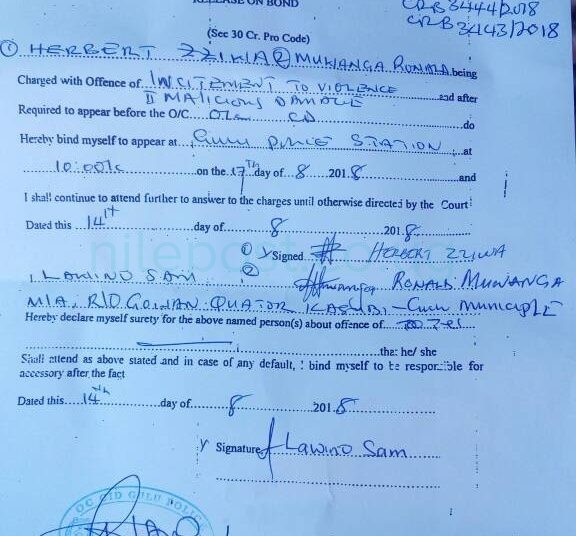 RELEASE ON BOND
CRB 3444/2018
CRB 3443/2018
(Sec 30 Cr. Pro Code)
① HERBERT ZZIWA ② MUWANGA RONALD being
Charged with Offence of INCITEMENT TO VIOLENCE
II MALICIOUS DAMAGE and after
Required to appear before the O/C CID do
Hereby bind myself to appear at Gulu POLICE STATION at
10:00 on the 17th day of 8 2018 and
I shall continue to attend further to answer to the charges until otherwise directed by the Court
Dated this 14th day of 8 2018
① Signed HERBERT ZZIWA
② RONALD MUWANGA
I LAWINO SAM
M/A, R/O QUATOR KASUBI - Gulu MUNICIPLE
Hereby declare myself surety for the above named person(s) about offence of
that he/ she
Shall attend as above stated and in case of any default, I bind myself to be responsible for
accessory after the fact
Dated this 14th day of 8 2018
Signature Lawino Sam
OC CID GULU POLICE
nilepost